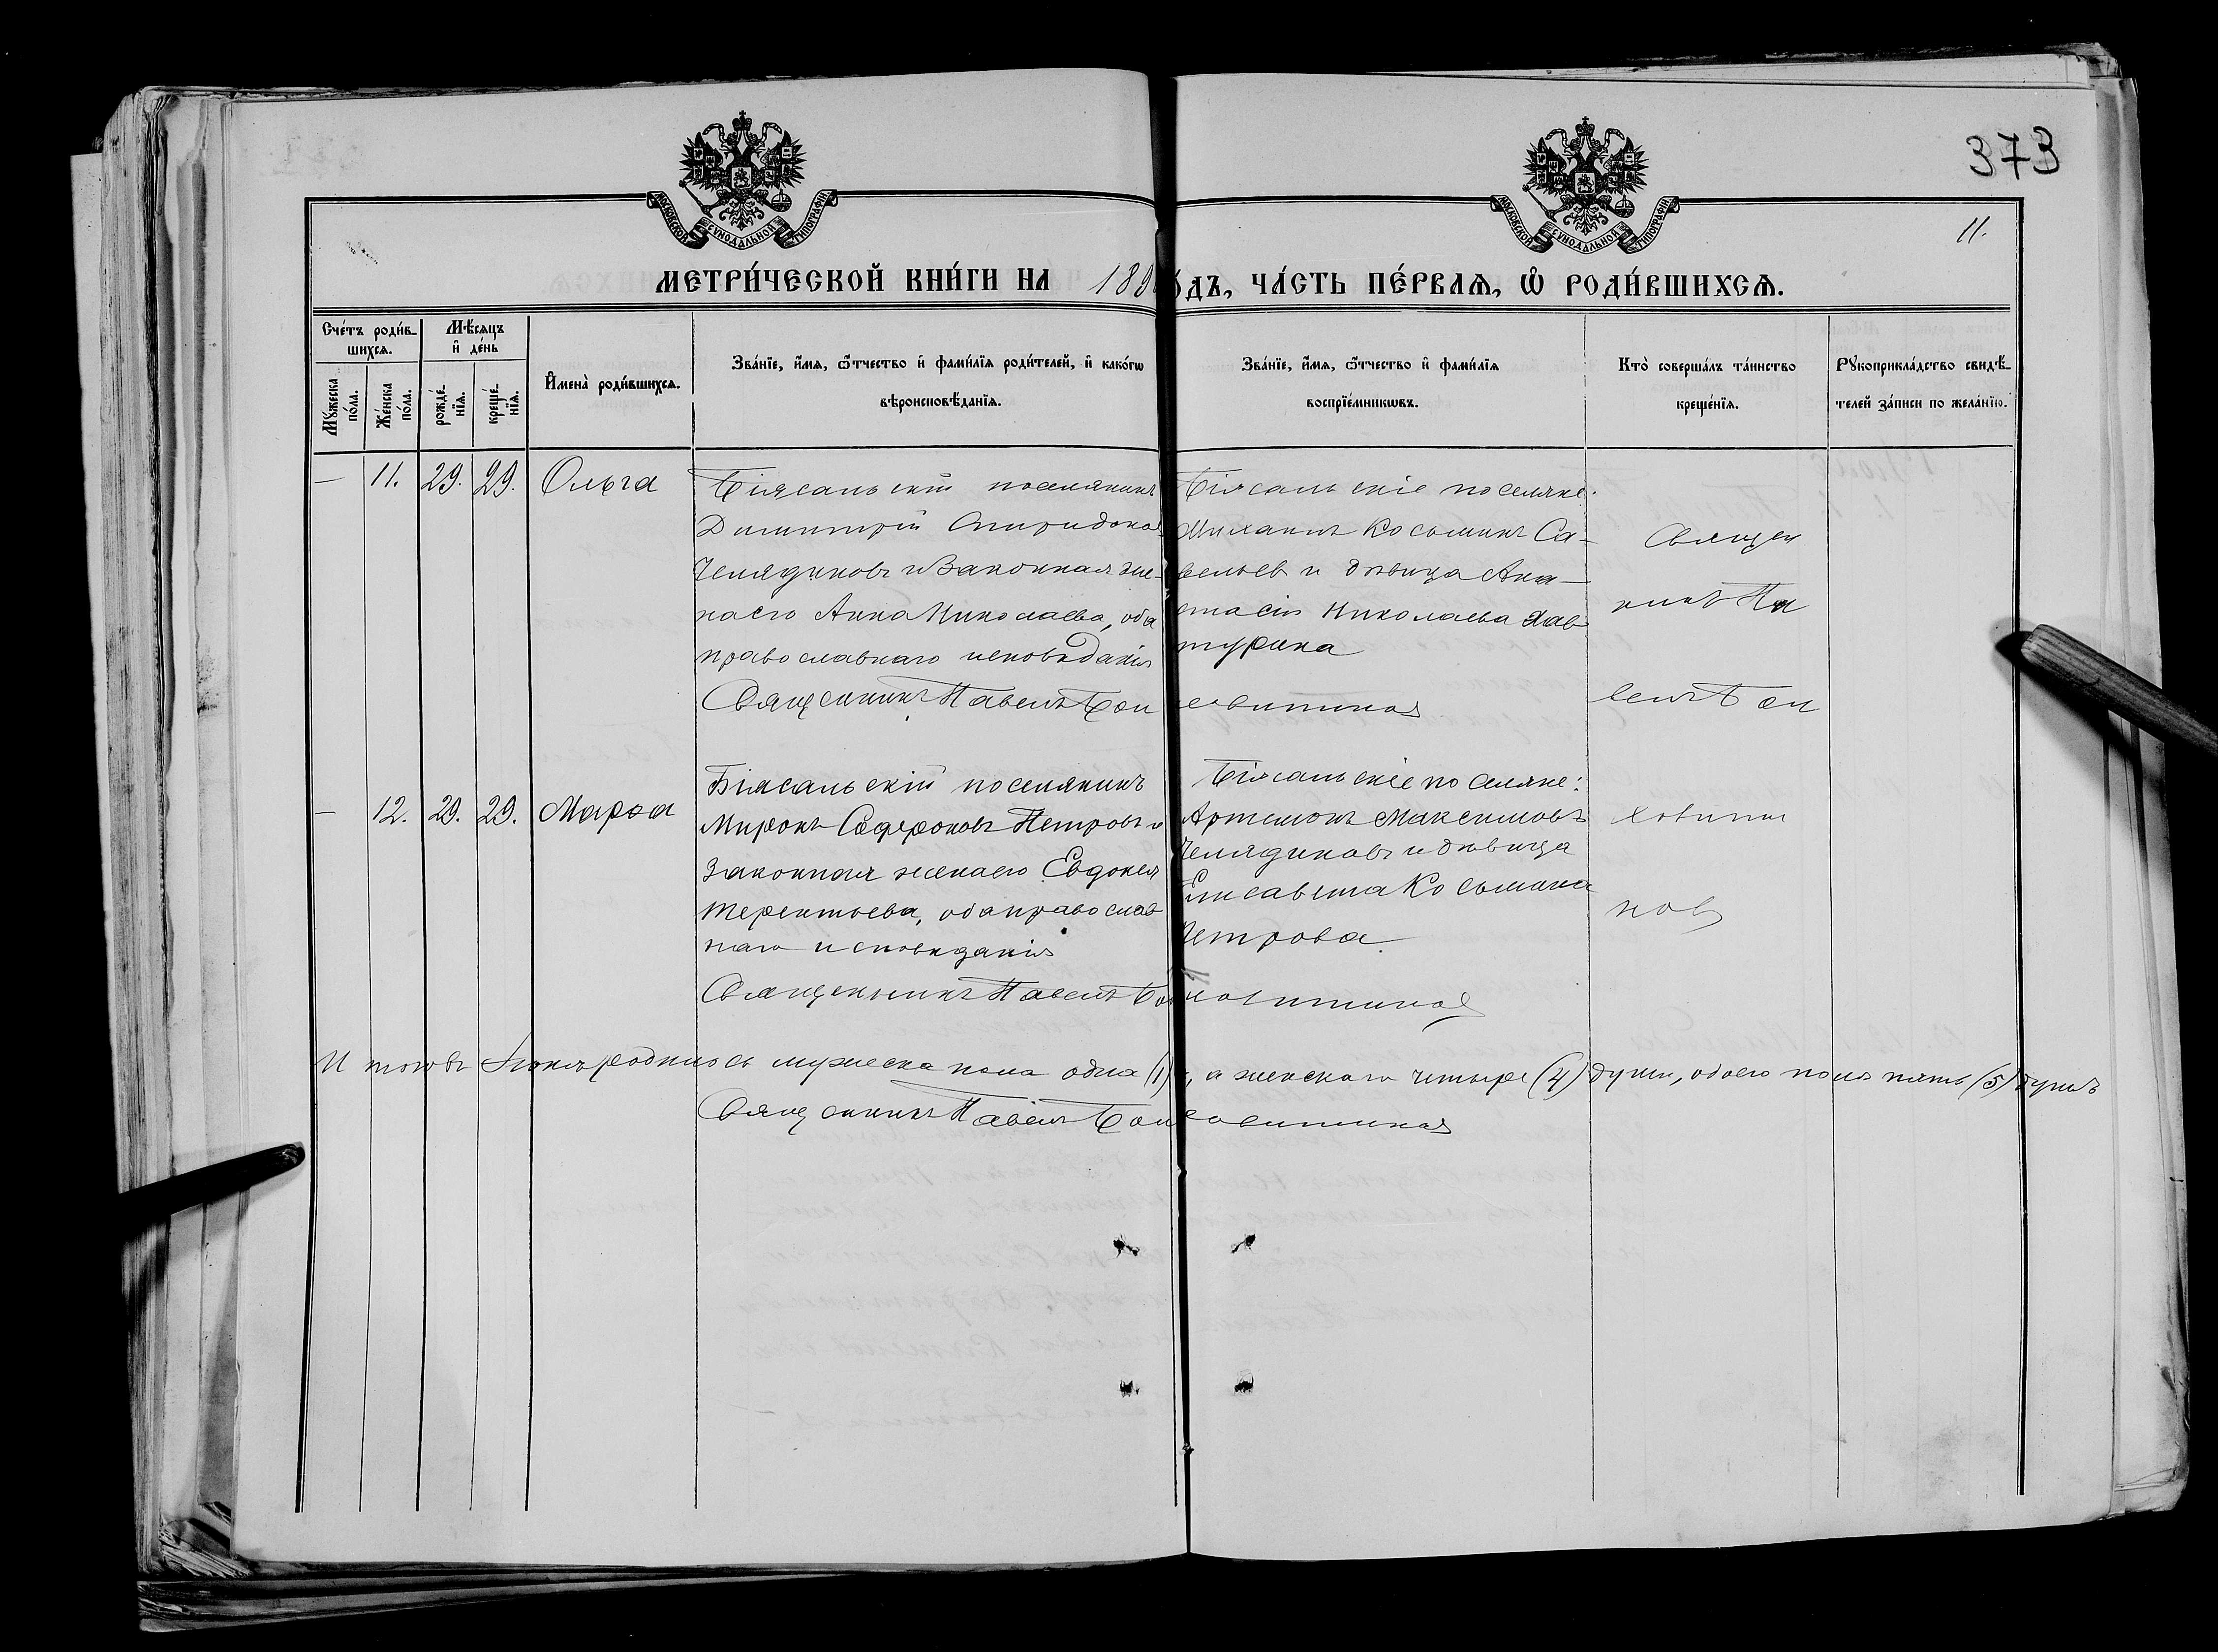 373
11.
МОСКОВСКОЙ СУНОДАЛЬНОЙ ТИПОГРАФІИ
МОСКОВСКОЙ СУНОДАЛЬНОЙ ТИПОГРАФІИ
МЕТРИ́ЧЕСКОЙ КНИ́ГИ НА 189 ДЪ, ЧА́СТЬ ПЕ́РВАѦ, Ѡ РОДИ́ВШИХСѦ.
Сче́тъ роди́в-
шихсѧ.
Мѣ́сѧцъ
и҆ де́нь
Мꙋ́жеска
по́ла.
Же́нска
по́ла.
рожде́-
нїѧ.
креще́-
нїѧ.
И҆мена̀ роди́вшихсѧ.
Зва́нїе, и҆́мѧ, ѻ҆́тчество и҆ фами́лїѧ роди́телей, и҆ како́гѡ
вѣроисповѣ́данїѧ.
Зва́нїе, и҆́мѧ, ѻ҆́тчество и҆ фами́лїѧ
воспрїе́мникѡвъ.
Кто̀ соверша́лъ та́инство
креще́нїѧ.
Рꙋкоприкла́дство свидѣ́-
телей за́писи по жела́нїю.
— 11. 29. 29. Ольга
Біясальскій поселянинъ
Димитрій Спиридонов
Челядиновъ и Законная же-
на его Анна Николаева, оба
православнаго исповѣданія
Священникъ Павелъ
Біясальскіе поселяне:
Михаилъ Косьминъ Са-
вельев и дѣвица Ана-
стасія Николаева Хав
турина
Священ
никъ Па
велъ
— 12. 29. 29. Марѳа
Біясальскій поселянинъ
Миронъ Софроновъ Петровъ и
Законная жена его Евдокія
Терентьева, оба православ
наго исповѣданія
Священникъ Павелъ
Біясальскіе поселяне:
Артемонъ Максимовъ
Челядиновъ и дѣвица
Елисавета Косьмина
Петрова.
новъ
Итого въ Іюнѣ родилось мужеска пола одна (1), а женскаго четыре (4) души, обоего пола пять (5) душъ
Священникъ Павелъ